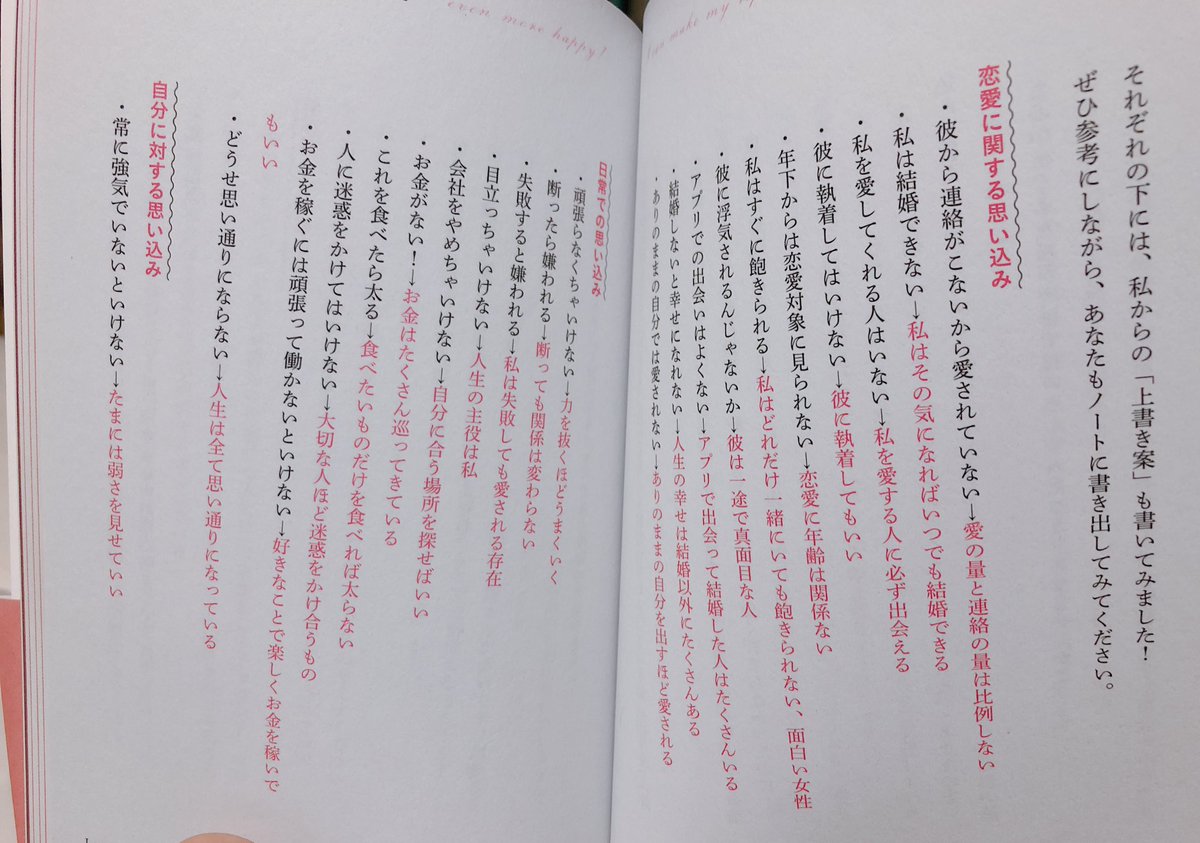 I can make my
それぞれの下には、私からの「上書き案」も書いてみました！
ぜひ参考にしながら、あなたもノートに書き出してみてください。
恋愛に関する思い込み
・彼から連絡がこないから愛されていない→愛の量と連絡の量は比例しない
・私は結婚できない→私はその気になればいつでも結婚できる
・私を愛してくれる人はいない→私を愛する人に必ず出会える
・彼に執着してはいけない→彼に執着してもいい
・年下からは恋愛対象に見られない→恋愛に年齢は関係ない
・私はすぐに飽きられる→私はどれだけ一緒にいても飽きられない、面白い女性
・彼に浮気されるんじゃないか→彼は一途で真面目な人
・アプリでの出会いはよくない→アプリで出会って結婚した人はたくさんいる
・結婚しないと幸せになれない→人生の幸せは結婚以外にたくさんある
・ありのままの自分では愛されない→ありのままの自分を出すほど愛される
even more happy!
日常での思い込み
・頑張らなくちゃいけない→力を抜くほどうまくいく
・断ったら嫌われる→断っても関係は変わらない
・失敗すると嫌われる→私は失敗しても愛される存在
・目立っちゃいけない→人生の主役は私
・会社をやめちゃいけない→自分に合う場所を探せばいい
・お金がない！→お金はたくさん巡ってきている
・これを食べたら太る→食べたいものだけを食べれば太らない
・人に迷惑をかけてはいけない→大切な人ほど迷惑をかけ合うもの
・お金を稼ぐには頑張って働かないといけない→好きなことで楽しくお金を稼いで
もいい
・どうせ思い通りにならない→人生は全て思い通りになっている
自分に対する思い込み
・常に強気でいないといけない→たまには弱さを見せていい